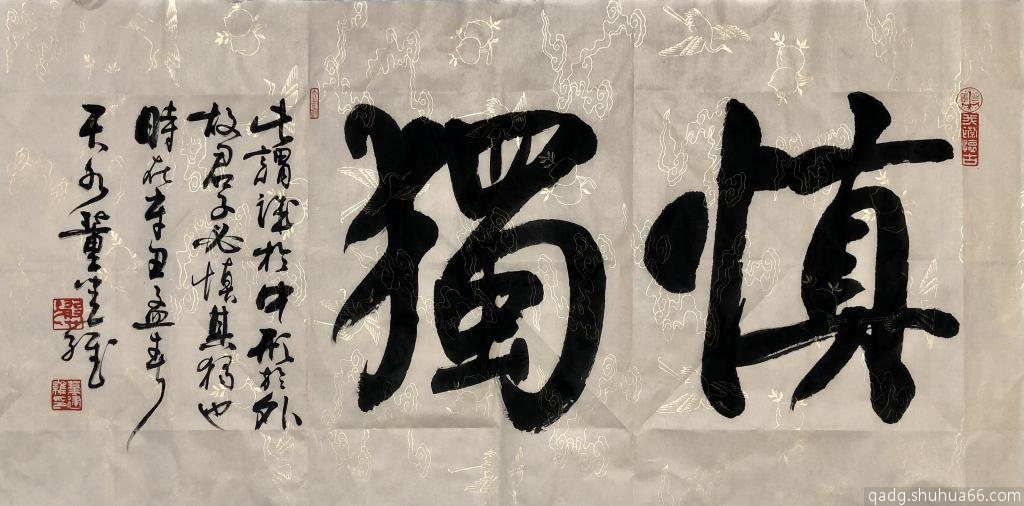 慎獨
此謂誠於中形於外
故君子必慎其獨也
時在辛丑孟春
天水董
qadg.shuhua66.com